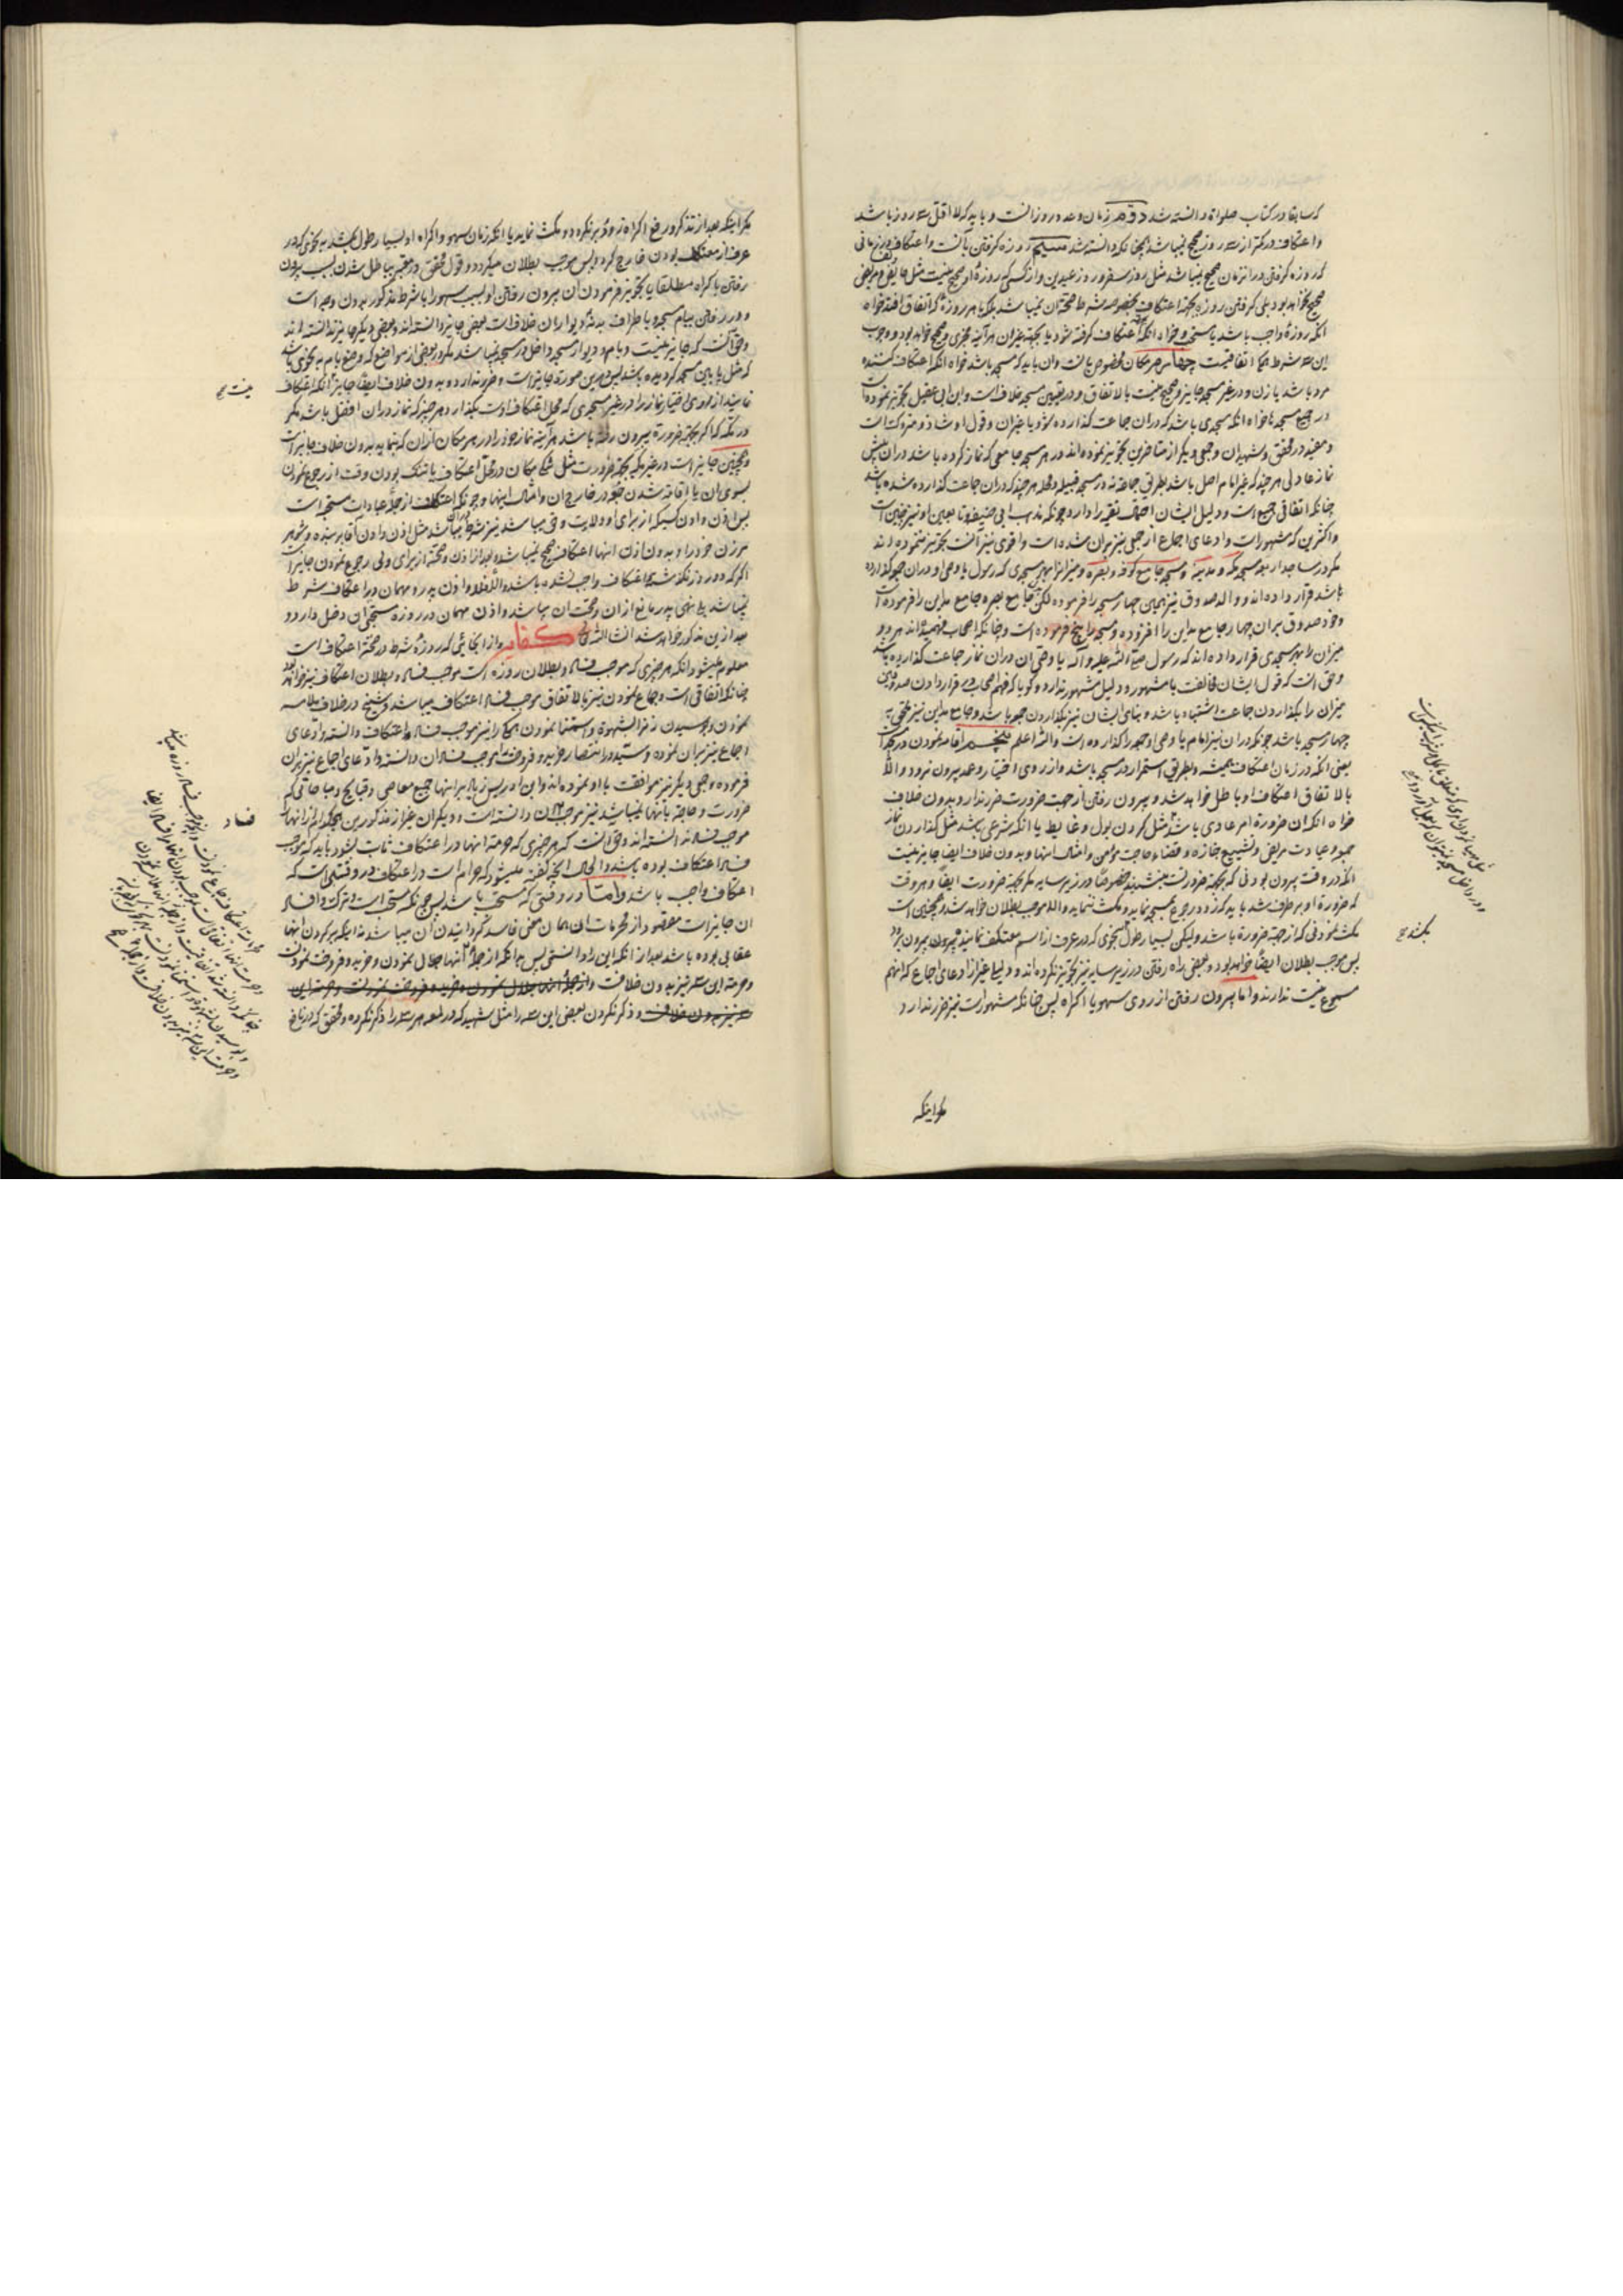 که سابقا در کتاب صلوات دانسته شد دوم زمان وعده روز انست و باید که لا اقل سه روز باشد
واعتکاف در کمتر از سه روز صحیح نمیباشد چنانکه دانسته شد سیم روزه کرفتن بانست واعتکاف در زمانی
که روزه کرفتن در ان زمان صحیح نمیباشد مثل روز سفر و روز عیدین واز کسی که روزه او صحیح نیست مثل حایض ومریض
صحیح نخواهد بود بلی کرفتن روزه بجهة اعتکاف بخصوصه شرط صحة ان نمیباشد بلکه با هر روزه که اتفاق افتد خواه
انکه روزه واجب باشد یا سنتی وخواه انکه بجهة اعتکاف کرفته شود یا بجهة غیر ان هر آینه مجزی وصحیح خواهد بود و وجوب
این سه شرط همکی اتفاقیست چهارم مکان مخصوص بانست وان باید که مسجد باشد خواه انکه اعتکاف کننده
مرد باشد یا زن ودر غیر مسجد جایز وصحیح نیست بالاتفاق ودر تعیین مسجد خلاف است وابن ابی عقیل تجویز نموده است
در جمیع مسجدها خواه انکه مسجدی باشد که در ان جماعت کذارده شود یا غیر ان وقول او شاذ و متروکست
ومفید ومحقق وشهیدان وجمعی دیکر از متاخرین تجویز نموده اند در هر مسجد جامعی که نماز کرده باشد در ان پیش
نماز عادلی هر چند که غیر امام اصل باشد بطریق جماعة نه در مسجد قبیله ومحله هر چند که در ان جماعت کذارده شده باشد
چنانکه اتفاقی جمیع است ودلیل ایشان احتمال تقیه را دارد چونکه مذهب ابی حنیفه وتابعین او نیز چنین است
واکثرین که مشهور است وادعای اجماع از جمعی نیز بران شده است واقوی نیز انست تجویز ننموده اند
مکر در مساجد اربعه مسجد مکه و مدینه و مسجد جامع کوفه و بصره ومیزان را هر مسجدی که رسول یا وصی او در ان جمعه کذارده
باشد قرار داده اند و والد صدوق نیز همین چهار مسجد را فرموده لکن بجای جامع بصره جامع مداین را فرموده است
وخود صدوق بران چهار جامع مداین را افزوده ومسجد را پنج فرموده است وچنانکه اصحاب فهمیده اند هر دو
میزان را هر مسجدی قرار داده اند که رسول صلی الله علیه و آله یا وصی آن در ان نماز جماعت کذارده باشد
وحق انست که قول ایشان مخالفت با مشهور و دلیل مشهور ندارد وکویا که فهم اصحاب در قرار دادن صدوقین
میزان را بکذاردن جماعت اشتباه باشد وبنای ایشان نیز بکذاردن جمعه باشد وجامع مداین نیز ملحق به
چهار مسجد باشد چونکه در ان نیز امام یا وصی او جمعه را کذارده است والله اعلم پنجم اقامه نمودن در مسجد
یعنی انکه در زمان اعتکاف همیشه وبطریق استمرار در مسجد باشد واز روی اختیار وعمد بیرون نرود والا
بالاتفاق اعتکاف او باطل خواهد شد و بیرون رفتن از جهت ضرورت ضرر ندارد وبدون خلاف
خواه انکه ان ضرورة امر عادی باشد مثل کردن بول وغایط یا انکه شرعی باشد مثل کذاردن نماز
جمعه وعیادت مریض وتشییع جنازه وقضاء حاجت مؤمن وامثال انها وبدون خلاف ایضا جایز نیست
انکه در وقت بیرون بودنی که بجهة ضرورتست بنشیند خصوصا در زیر سایه مکر بجهة ضرورت ایضا وهر وقت
که ضرورة او برطرف شد باید که زود رجوع بمسجد نماید ومکث ننماید والا موجب بطلان خواهد شد وهمچنین است
مکث نمودنی که از جهة ضرورة باشد ولیکن بسیار طول بنحوی که در عرف از اسم معتکف نمایند بیرون برود
پس موجب بطلان ایضا خواهد بود وبعضی راه رفتن در زیر سایه نیز تجویز نکرده اند و دلیلی غیر از ادعای اجماع که انهم
مسموع نیست ندارند واما بیرون رفتن از روی سهو یا اکراه پس چنانکه مشهور است نیز ضرر ندارد
بکند صح
مکر اینکه
مکر اینکه بعد از تذکر ورفع اکراه زود بر نکردد ومکث نماید یا انکه زمان سهو واکراه او بسیار طول بکشد بنحوی که در
عرف از معتکف بودن خارج کردد پس موجب بطلان میکردد وقول محقق در معتبر بباطل شدن بسبب بیرون
رفتن باکراه مطلقا یا تجویز فرمودن ان بیرون رفتن او بسبب سهو را با شرط مذکور بدون وجه است
ودر رفتن ببام مسجد یا طراف بدنه دیوار ان خلاف است بعضی جایز دانسته اند وبعضی دیکر جایز ندانسته اند
وحق آنست که جایز نیست وبام ودیوار مسجد داخل در مسجد نمیباشد مکر در بعضی از مواضع که وضع بام به نحوی باشد
که مثل پایین مسجد کردیده باشد پس در این صورت جایز است وضرر ندارد وبدون خلاف ایضا جایز انکه اعتکاف
نماینده از روی اختیار نماز را در غیر مسجدی که محل اعتکاف اوست بکذارد هر چند که نماز در ان افضل باشد مکر
در مکه که اکر بجهة ضرورة بیرون رفته باشد هر آینه نماز خود را در هر مکان از ان که بنماید بدون خلاف جایز است
وهمچنین جایز است در غیر مکه بجهة ضرورت مثل تنکی مکان در محل اعتکاف یا تنک بودن وقت از رجوع نمودن
بسوی ان یا اقامه شدن جمعه در خارج ان وامثال اینها وچونکه اعتکاف از جمله عبادات مستحبه است
پس اذن دادن کسیکه از برای او ولایت وقی میباشد نیز شرط میباشد مثل اذن دادن آقا بر بنده وشوهر
بر زن خود را وبدون اذن انها اعتکاف صحیح نمیباشد وبعد از اذن وصحة از برای ولی رجوع نمودن جایز است
اکر که دو روز نکذشته یا اعتکاف واجب نشده باشد والا فلا واذن پدر ومهمان در اعتکاف شرط
نمیباشد بلی نهی پدر مانع از ان وصحت ان میباشد واذن مهمان در روزه مستحبی ان دخل دارد و
بعد از این مذکور خواهد شد انشاء الله تعالی واز انجائی که روزه شرط در صحة اعتکاف است
معلوم میشود انکه هر چیزی که موجب فساد وبطلان روزه است موجب فساد وبطلان اعتکاف نیز خواهد بود
چنانکه اتفاقی است وجماع نمودن نیز بالاتفاق موجب فساد اعتکاف میباشد وشیخ در خلاف ملامسه
نمودن وبوسیدن زنرا بشهوة واستمنا نمودن همکی را نیز موجب فساد اعتکاف دانسته وادعای
اجماع نیز بران نموده وسید در انتصار خرید وفروخت موجب فساد ان دانسته وادعای اجماع نیز بران
فرموده وجمعی دیکر نیز موافقت با او نموده اند وابن ادریس زیاده بر انها جمیع معاصی وقبایح ومباحاتی که
ضرورت وحاجة بانها نمیباشد نیز موجب ان دانسته است ودیکران غیر از مذکورین هیچکدام از انها را
موجب فساد ندانسته اند وحق انست که هر چیزی که حرمة انها در اعتکاف ثابت بشود باید که موجب
فساد اعتکاف بوده باشد والحال انچه کفته میشود که حرام است در اعتکاف در وقتیست که
اعتکاف واجب باشد واما در وقتی که مستحب باشد پس چونکه مستحبی است وترک وافساد
ان جایز است مقصود از محرمات ان همان معنی فاسد کردانیدن ان میباشد نه اینکه بر کردن انها
عقابی بوده باشد بعد از انکه این را دانستی پس بدانکه از جمله انها جدال نمودن وخرید وفروخت نمودنست
وحرمة این سه نیز بدون خلافست واز جمله انها جدال نمودن وخرید وفروخت نمودنست وحرمة این
سه نیز بدون خلاف وذکر نکردن بعضی این سه را مثل شهید که در لمعه هر سه را ذکر نکرده ومحقق که در نافع
نیست صح
فساد